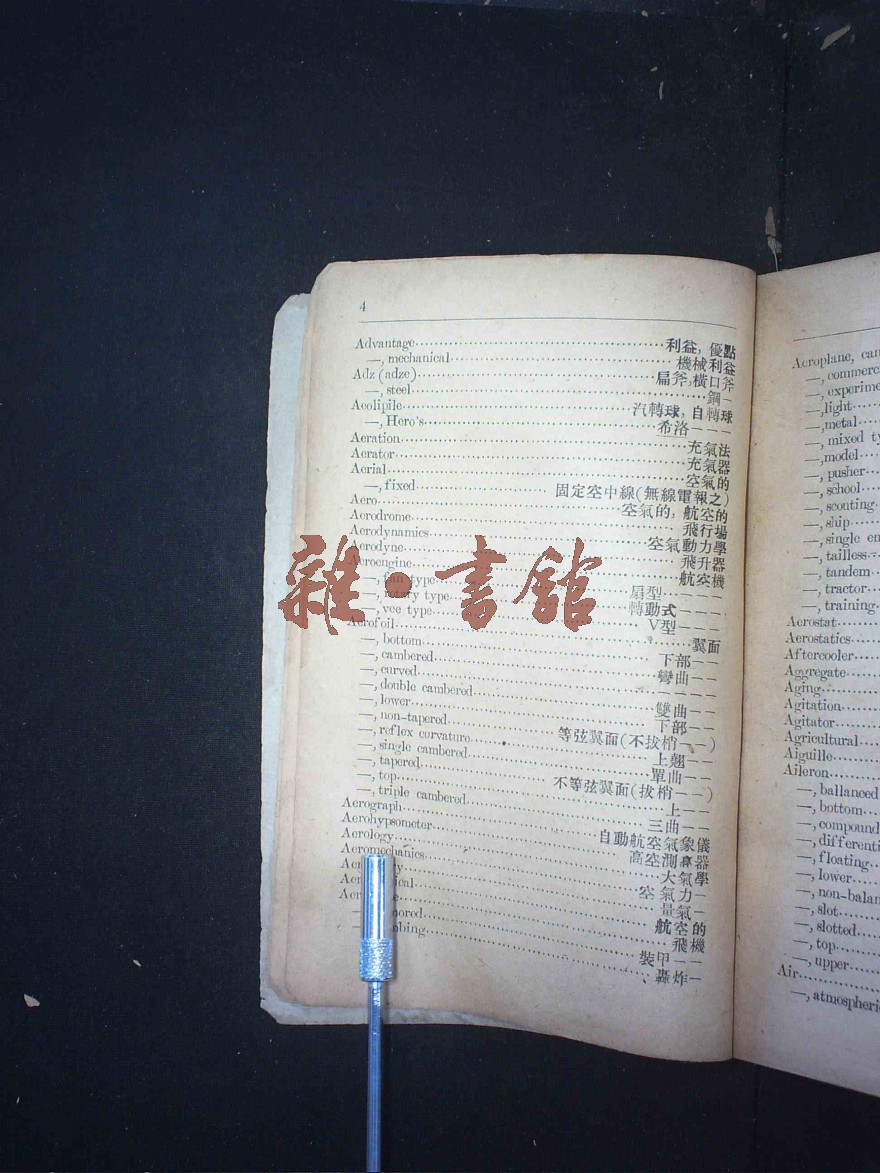 4
Advantage 利益, 優點
—, mechanical 機械利益
Adz (adze) 扁斧, 橫口斧
—, steel 鋼—
Aeolipile 汽轉球, 自轉球
—, Hero's 希洛———
Aeration 充氣法
Aerator 充氣器
Aerial 空氣的
—, fixed 固定空中線(無線電報之)
Aero 空氣的, 航空的
Aerodrome 飛行場
Aerodynamics 空氣動力學
Aerodyne 飛升器
Aeroengine 航空機
—, fan type 扇型———
—, rotary type 轉動式———
—, vee type V型——
Aerofoil 翼面
—, bottom 下部——
—, cambered 彎曲——
—, curved ———
—, double cambered 雙曲——
—, lower 下部——
—, non-tapered 等弦翼面(不拔梢——)
—, reflex curvature 上翹——
—, single cambered 單曲——
—, tapered 不等弦翼面(拔梢——)
—, top 上——
—, triple cambered 三曲——
Aerograph 自動航空氣象儀
Aerohypsometer 高空測高器
Aerology 大氣學
Aeromechanics 空氣力—
量氣—
航空的
飛機
裝甲——
轟炸—
Aeroplane,
—, commerc
—, experime
—, light
—, metal
—, mixed ty
—, model
—, pusher
—, school
—, scouting
—, ship
—, single en
—, tailless
—, tandem
—, tractor
—, training
Aerostat
Aerostatics
Aftercooler
Aggregate
Aging
Agitation
Agitator
Agricultural
Aiguille
Aileron
—, ballanced
—, bottom
—, compound
—, differenti
—, floating
—, lower
—, non-balan
—, slot
—, slotted
—, top
—, upper
Air
—, atmospheric
雜·書館